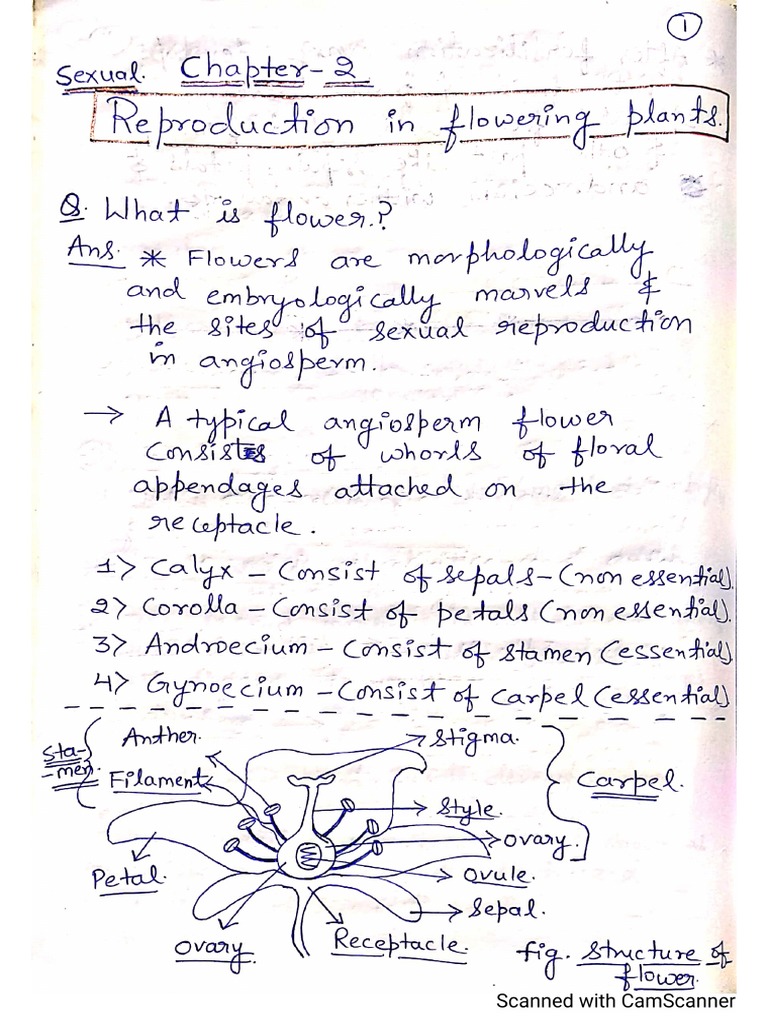 1
Sexual. Chapter-2
Reproduction in flowering plants.
Q. What is flower.?
Ans. * Flowers are morphologically
and embryologically marvels &
the sites of sexual reproduction
in angiosperm.
→ A typical angiosperm flower
Consists of whorls of floral
appendages attached on the
receptacle.
1> Calyx - Consist of sepals - (non essential).
2> Corolla - Consist of petals (non essential).
3> Androecium - Consist of stamen (essential)
4> Gynoecium - Consist of carpel (essential)
Anther.
Stigma.
Sta-
-men.
Filament
Carpel.
Style.
Ovary.
Petal.
Ovule.
Sepal.
Ovary.
Receptacle.
fig. Structure of
flower.
Scanned with CamScanner